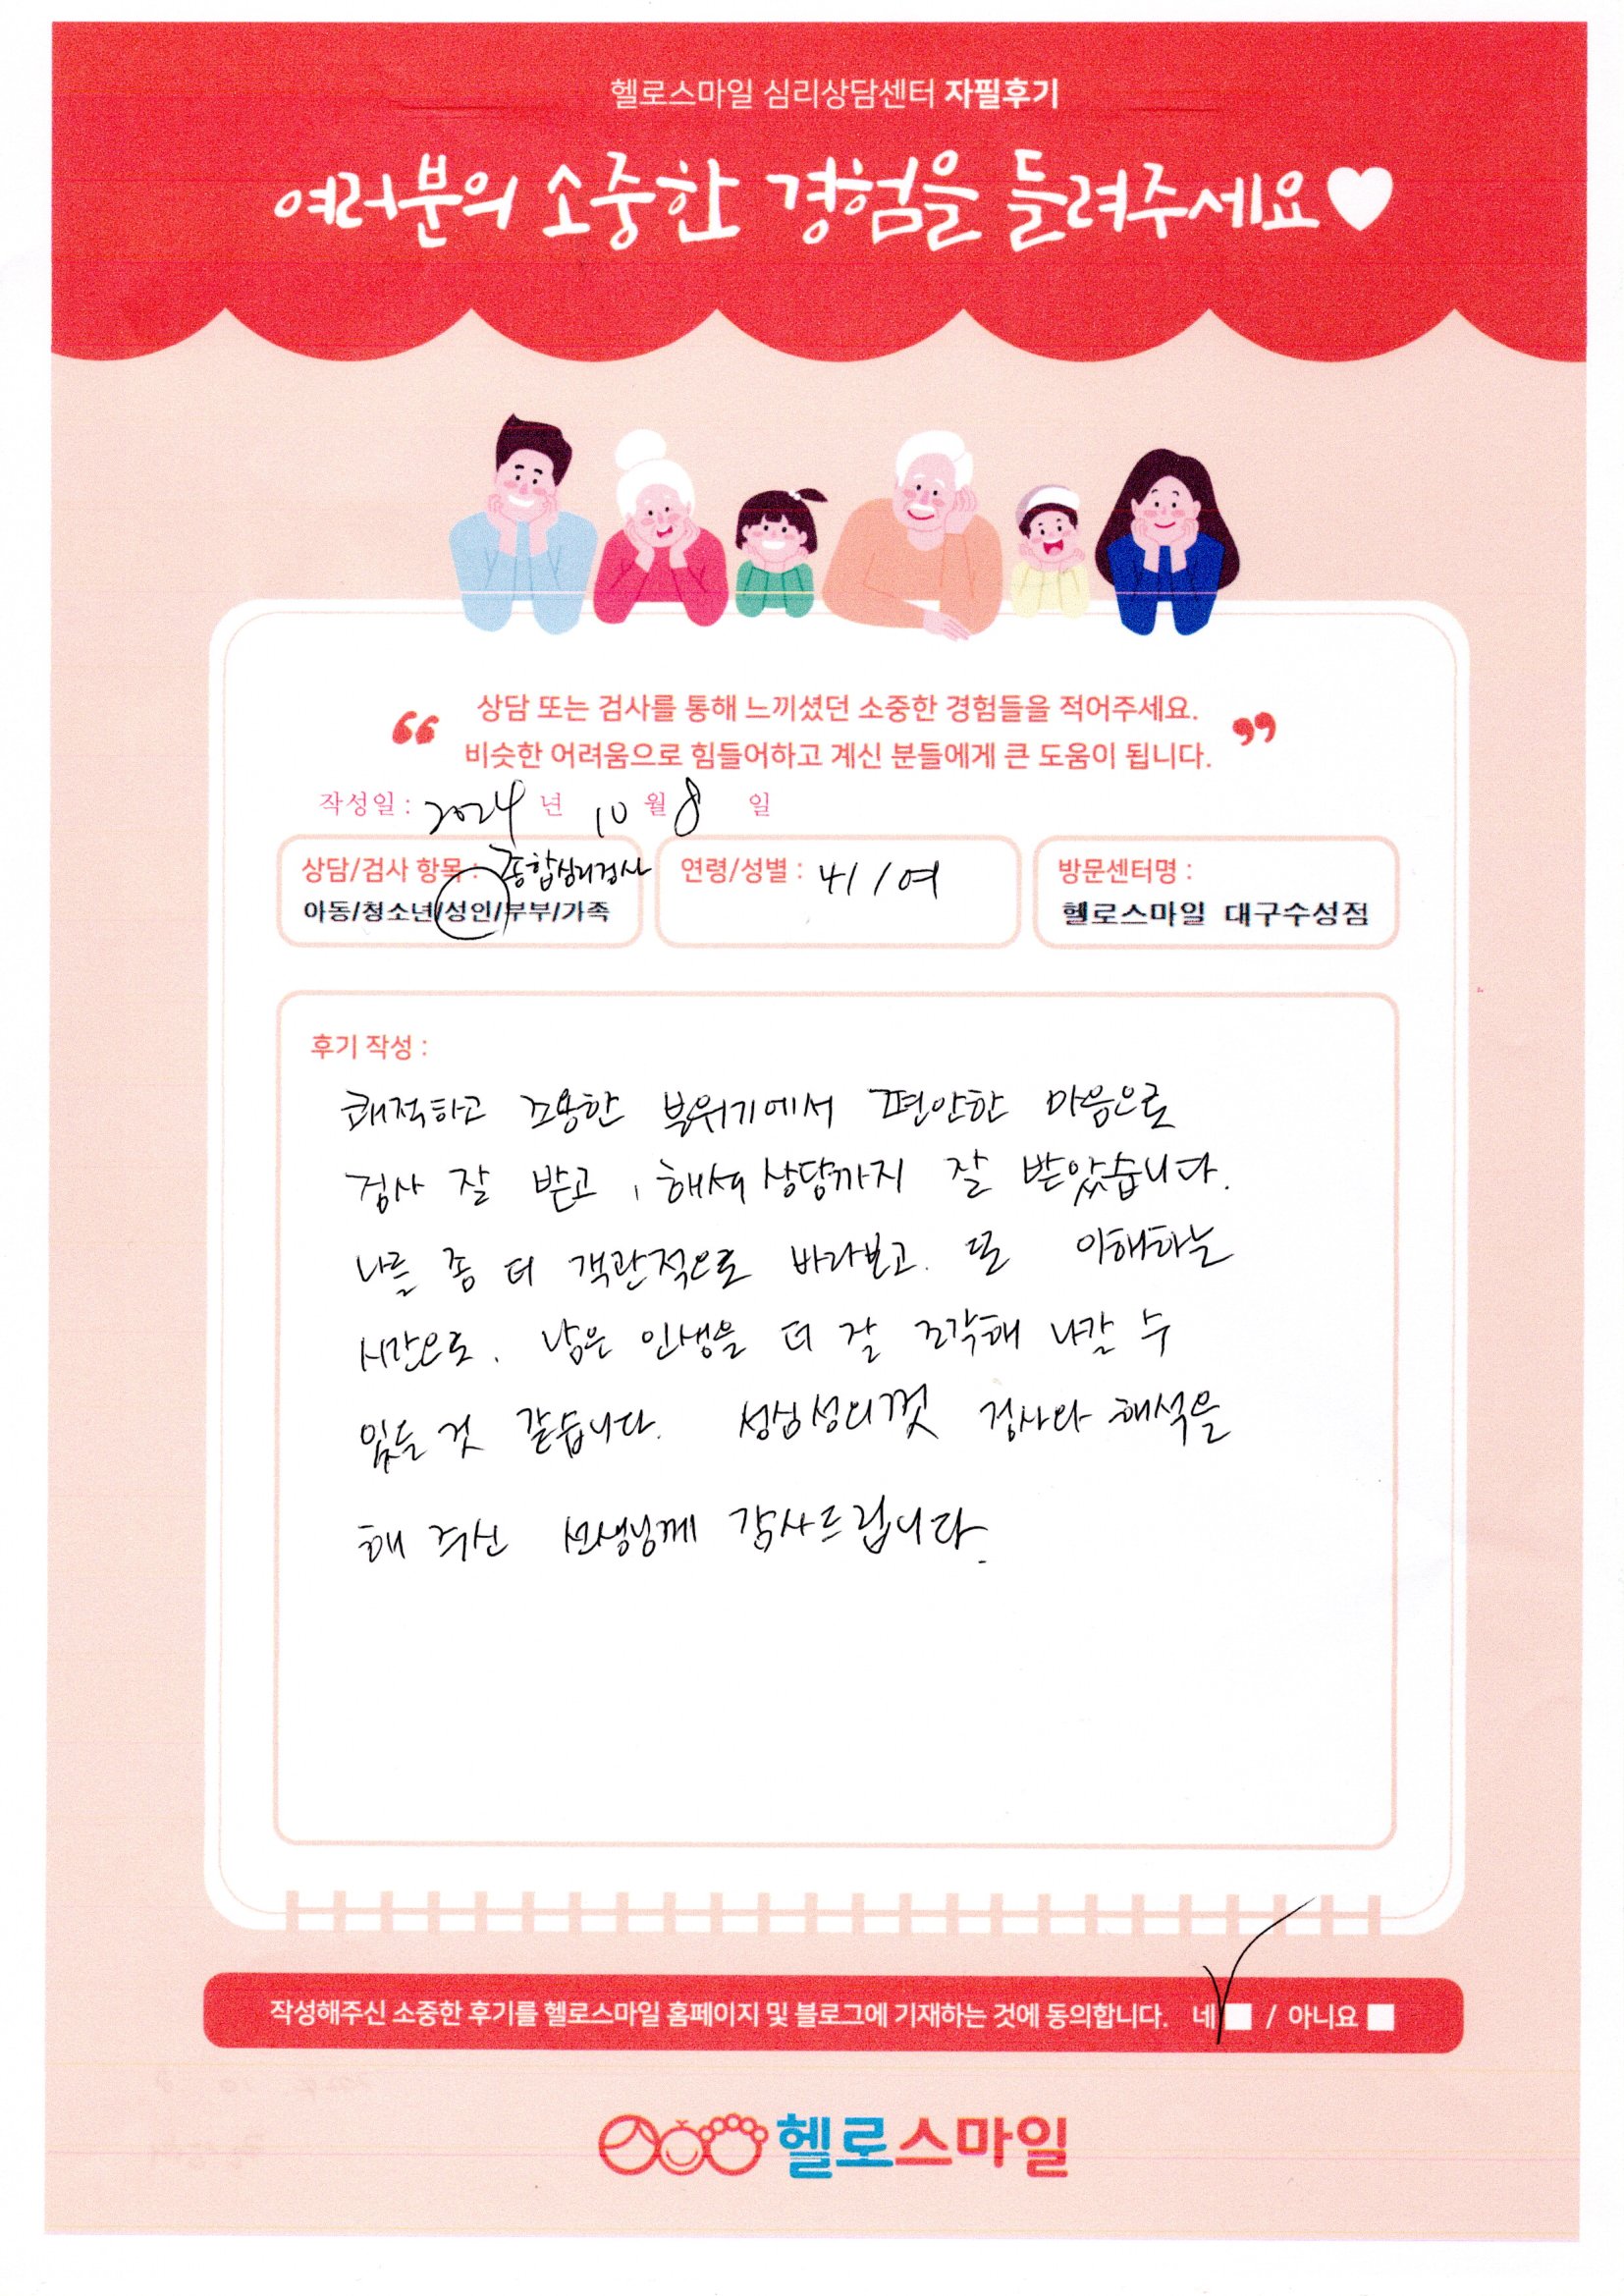 헬로스마일 심리상담센터 자필후기
여러분의 소중한 경험을 들려주세요
상담 또는 검사를 통해 느끼셨던 소중한 경험들을 적어주세요.
비슷한 어려움으로 힘들어하고 계신 분들에게 큰 도움이 됩니다.
작성일 : 2024 년 10 월 8 일
상담/검사 항목 : 종합심리검사
아동/청소년/성인/부부/가족
연령/성별 : 41 / 여
방문센터명 :
헬로스마일 대구수성점
후기 작성 :
쾌적하고 조용한 분위기에서 편안한 마음으로
검사 잘 받고, 해석 상담까지 잘 받았습니다.
나를 좀 더 객관적으로 바라보고. 또 이해하는
시간으로. 남은 인생을 더 잘 조각해 나갈 수
있을 것 같습니다. 성심성의껏 검사와 해석을
해 주신 선생님께 감사드립니다.
작성해주신 소중한 후기를 헬로스마일 홈페이지 및 블로그에 기재하는 것에 동의합니다. 네 / 아니요
헬로스마일